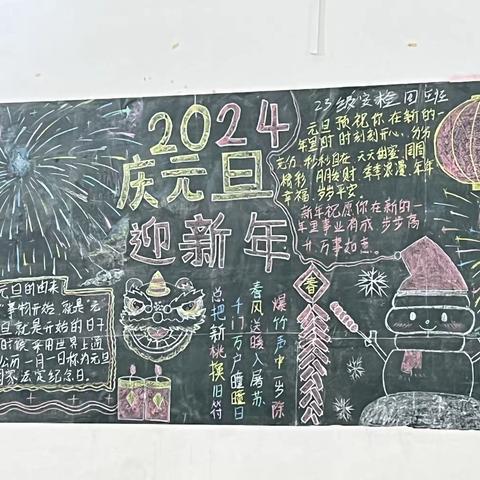 2024
庆元旦
迎新年
23级安检团班
元旦预祝你在新的一
年里时时刻刻开心,分分
充力,秒秒自在,天天甜蜜,周周
精彩,月月发财,季季浪漫,年年
幸福,岁岁平安。
新年祝愿你在新的一
年里事业有成,步步高
升,万事如意。
元旦的由来
事物开始,就是"元
旦就是开始的日子
时候采用世界上通
公历一月一日称为元旦
国家法定纪念日。
春
爆竹声中一岁除
春风送暖入屠苏
千门万户曈曈日
总把新桃换旧符